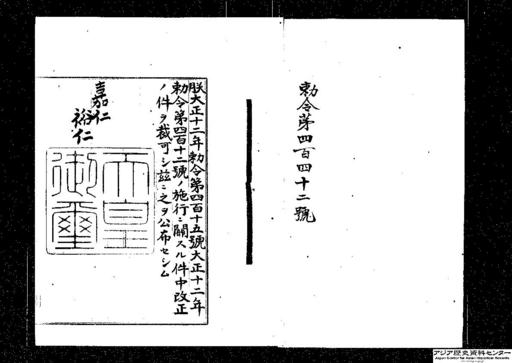 勅令第四百四十二號
朕大正十二年勅令第四百十五號大正十二年
勅令第四百十二號ノ施行ニ關スル件中改正
ノ件ヲ裁可シ茲ニ之ヲ公布セシム
嘉仁
裕仁
天皇
御璽
アジア歴史資料センター
Japan Center for Asian Historical Records